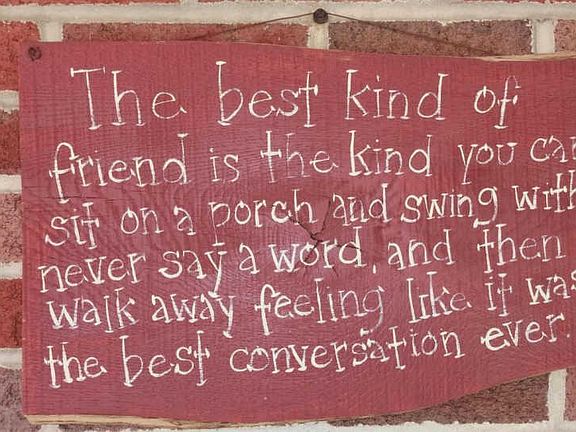 The best kind of
friend is the kind you can
sit on a porch and swing with
never say a word, and then
walk away feeling like it was
the best conversation ever.